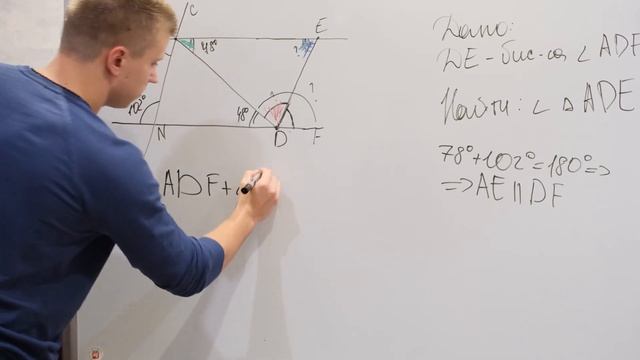 C
E
48°
?
?
102°
48°
N
D
F
ADF+
Дано:
DE-бис-са ∠ADF
Найти: ∠ △ ADE
78°+102°=180°=>
=>AE||DF